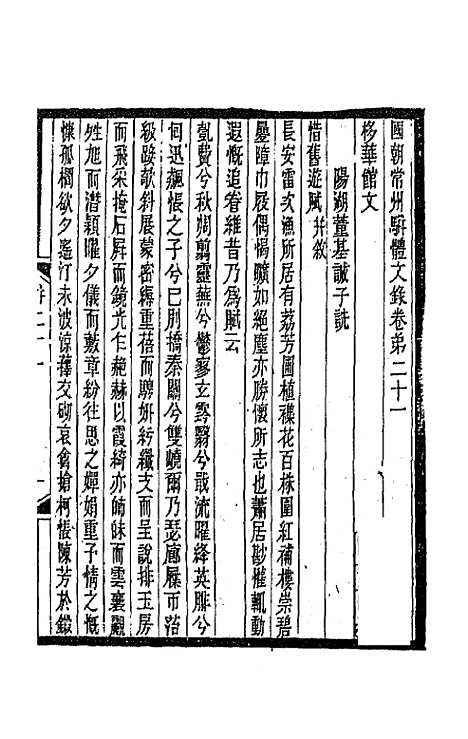 國朝常州駢體文錄卷弟二十一
栘華館文
陽湖董基誠子詵
惜舊遊賦并敘
長安雷次漁所居有荔芳圃植襍花百株圍紅補樓崇碧
屢障巾屐偶惕曠如絕塵亦勝懷所志也蕭居尠懽輒動
遐慨追眷維昔乃爲賦云
凱費兮秋凋翦靈蕪兮鬱寥玄雲翳兮戢流曜絳英腓兮
何迅飆悵之子兮已別攜秦關兮雙嶢爾乃瑟廊屧帀㳫
級踐欹斜展蒙密縟重蓓而騁妍紆纖支而呈說排玉房
而飛采掩石屏而鏡光乍赩赫以霞綺亦師昧而雲襄
姓旭而潛穎曜夕儀而敷章紛往思之嬋娟重予情之慨
慊孤棡欲夕遙汀未波涼蘀交砌哀禽搶柯悵陳芳於